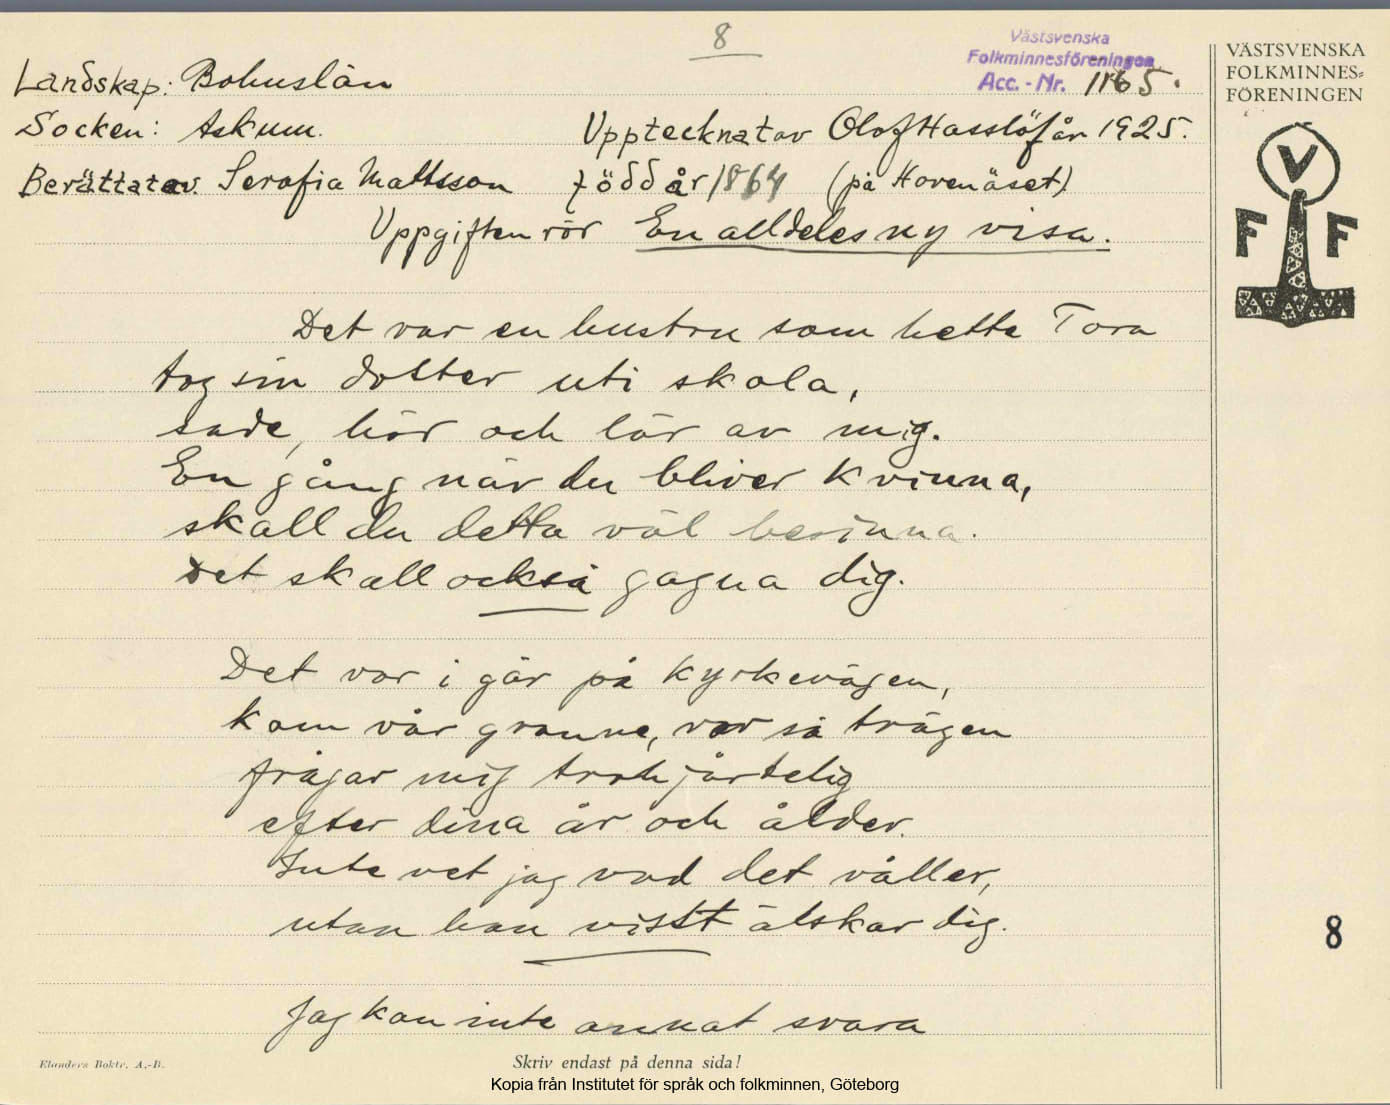 8
Västsvenska
Folkminnesföreningen
Acc. - Nr. 1165.
VÄSTSVENSKA
FOLKMINNES-
FÖRENINGEN
V
F F
Landskap: Bohuslän
Socken: Askum. Upptecknat av Olof Hasslöf år 1925.
Berättat av Serafia Mattsson född år 1864 (på Hovenäset)
Uppgiften rör En alldeles ny visa.
Det var en hustru som hette Tora
tog sin dotter uti skola,
sade, hör och lär av mig.
En gång när du bliver kvinna,
skall du detta väl besinna.
Det skall också gagna dig.
Det var i går på kyrkevägen,
kom vår granne, var så trägen
frågar mig trohjärtelig
efter dina år och ålder.
Inte vet jag vad det våller,
utan han visst älskar dig.
8
Jag kan inte annat svara
Elanders Boktr. A.-B.
Skriv endast på denna sida!
Kopia från Institutet för språk och folkminnen, Göteborg